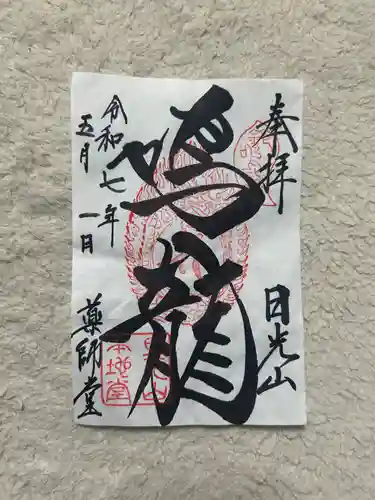 奉拝
日光山
鳴龍
令和七年
五月一日
薬師堂
本地堂